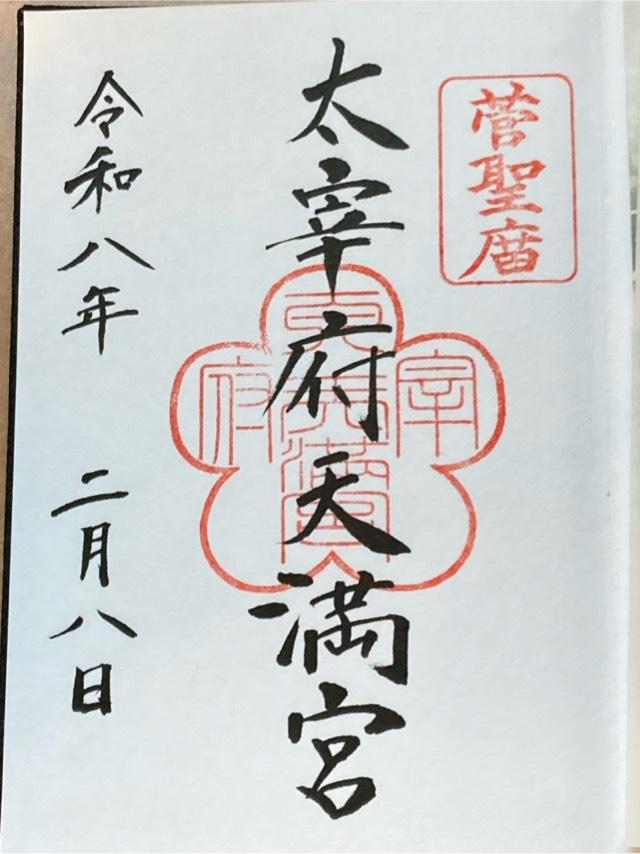 菅聖庿
太宰府天満宮
宰
府
令和八年 二月八日